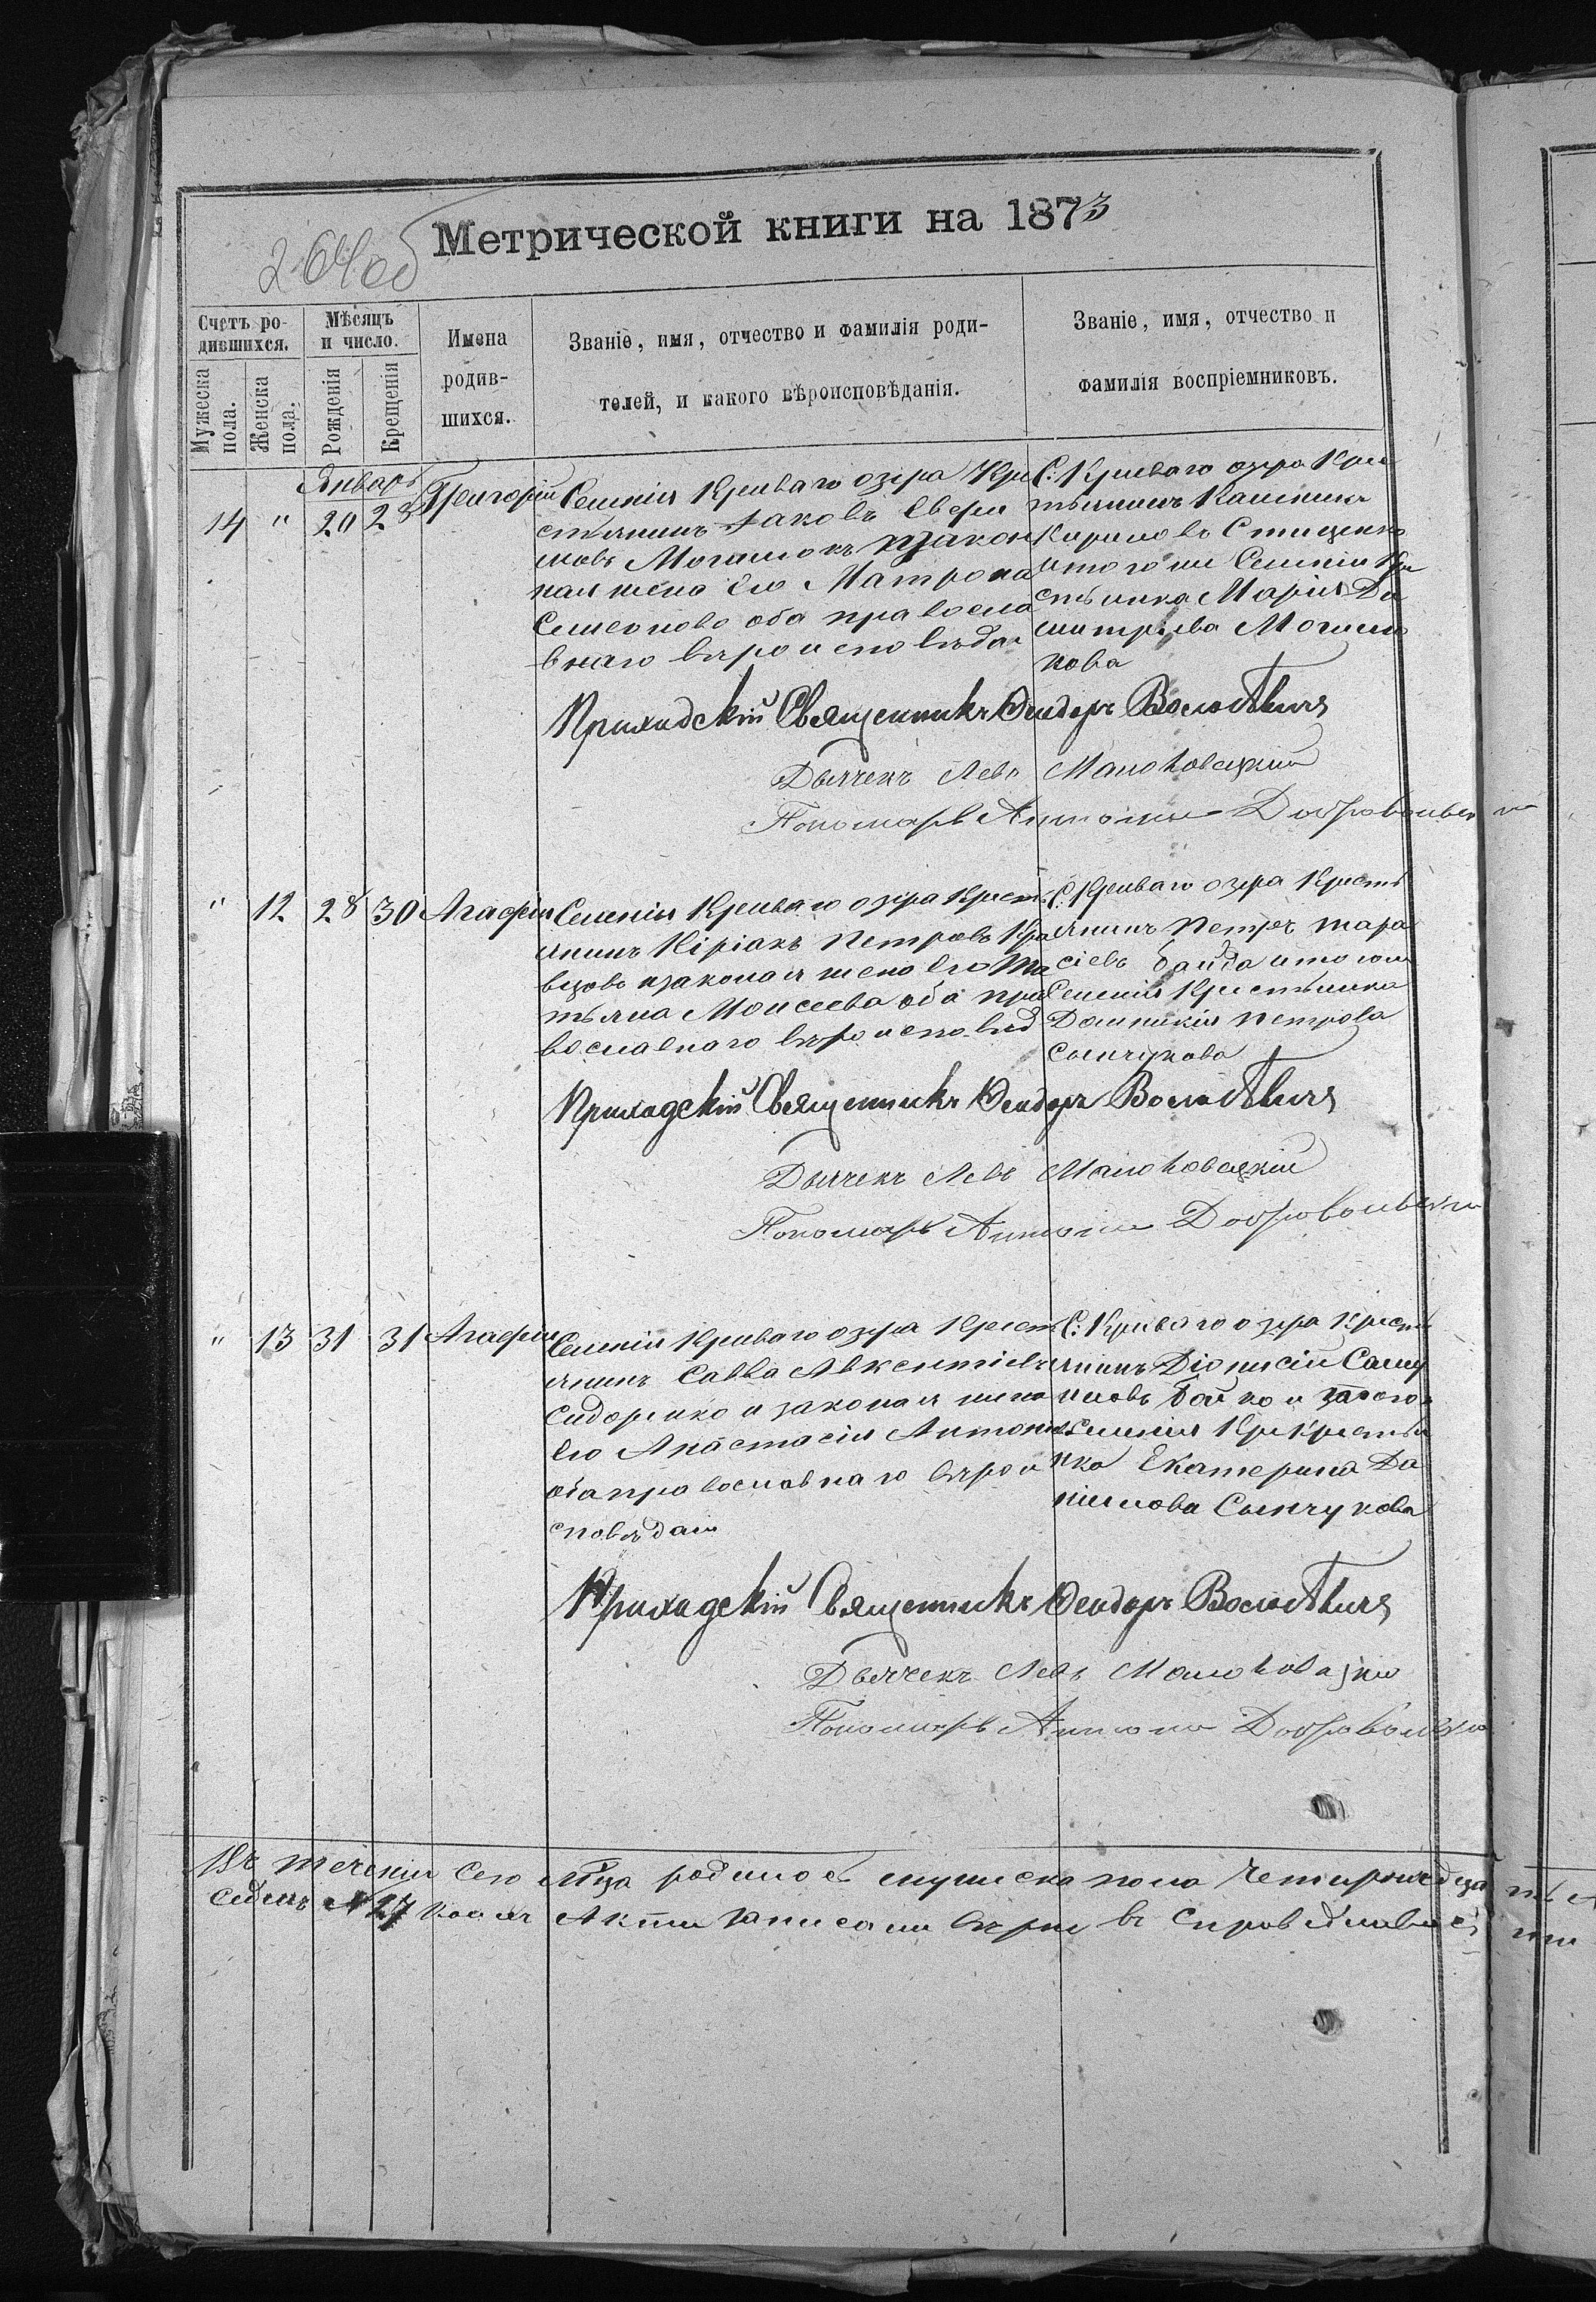 264об
Метрической книги на 1873
Счетъ ро-
дившихся.
Мужеска
пола.
Женска
пола.
Мѣсяцъ
и число.
Рожденія
Крещенія
Имена
родив-
шихся.
Званіе, имя, отчество и фамилія роди-
телей, и какого вѣроисповѣданія.
Званіе, имя, отчество и
фамилія воспріемниковъ.
Январь
14 " 20 28 Григорій
Селенія Криваго озера Кре
стьянинъ Іаковъ
Могилюкъ изакон
ная жена его Матрона
Семенова оба правосла
внаго вѣроисповѣда
С: Криваго озера Крес
тьянинъ
Кириловъ Стиценко
итогоже Селенія Кре
стьянка Марія Ди
митріева Могилю
кова
Приходскій Священникъ Ѳеодоръ
Дьячекъ Левъ
Пономарь Антоній Добровольскій
" 12 28 30 Агафія
Селенія Криваго озера Кресть
янинъ Киріакъ Петровъ Кра
вцовъ изаконая жена его Та
тьяна Моисеева оба пра
вославнаго вѣроисповѣд
С. Криваго озера Кресть
янинъ Петръ Тара
сіевъ Байда итогоже
Селенія Крестьянка
Домникія Петрова
Сынчукова
Приходскій Священникъ Ѳеодоръ
Дьячекъ Левъ
Пономарь Антоній Добровольскій
" 13 31 31 Агафія
Селенія Криваго озера Крест
янинъ Савва Авксентіевъ
Сидоренко и законая жена
его Анастасія Антоніева
оба православнаго вѣрои
сповѣдаія
С: Криваго озера Кресть
янинъ Діонисій Саму
иловъ Бойко и тогоже
Селенія Кре Крестья
нка Екатерина Да
ніилова Сынчукова
Приходскій Священникъ Ѳеодоръ
Дьячекъ Левъ
Пономарь Антоній Добровольскій
Въ теченіи сего мѣца родилось мужеска пола четырнадца
седмъ №27 Акти записани вѣрни въ справедливос